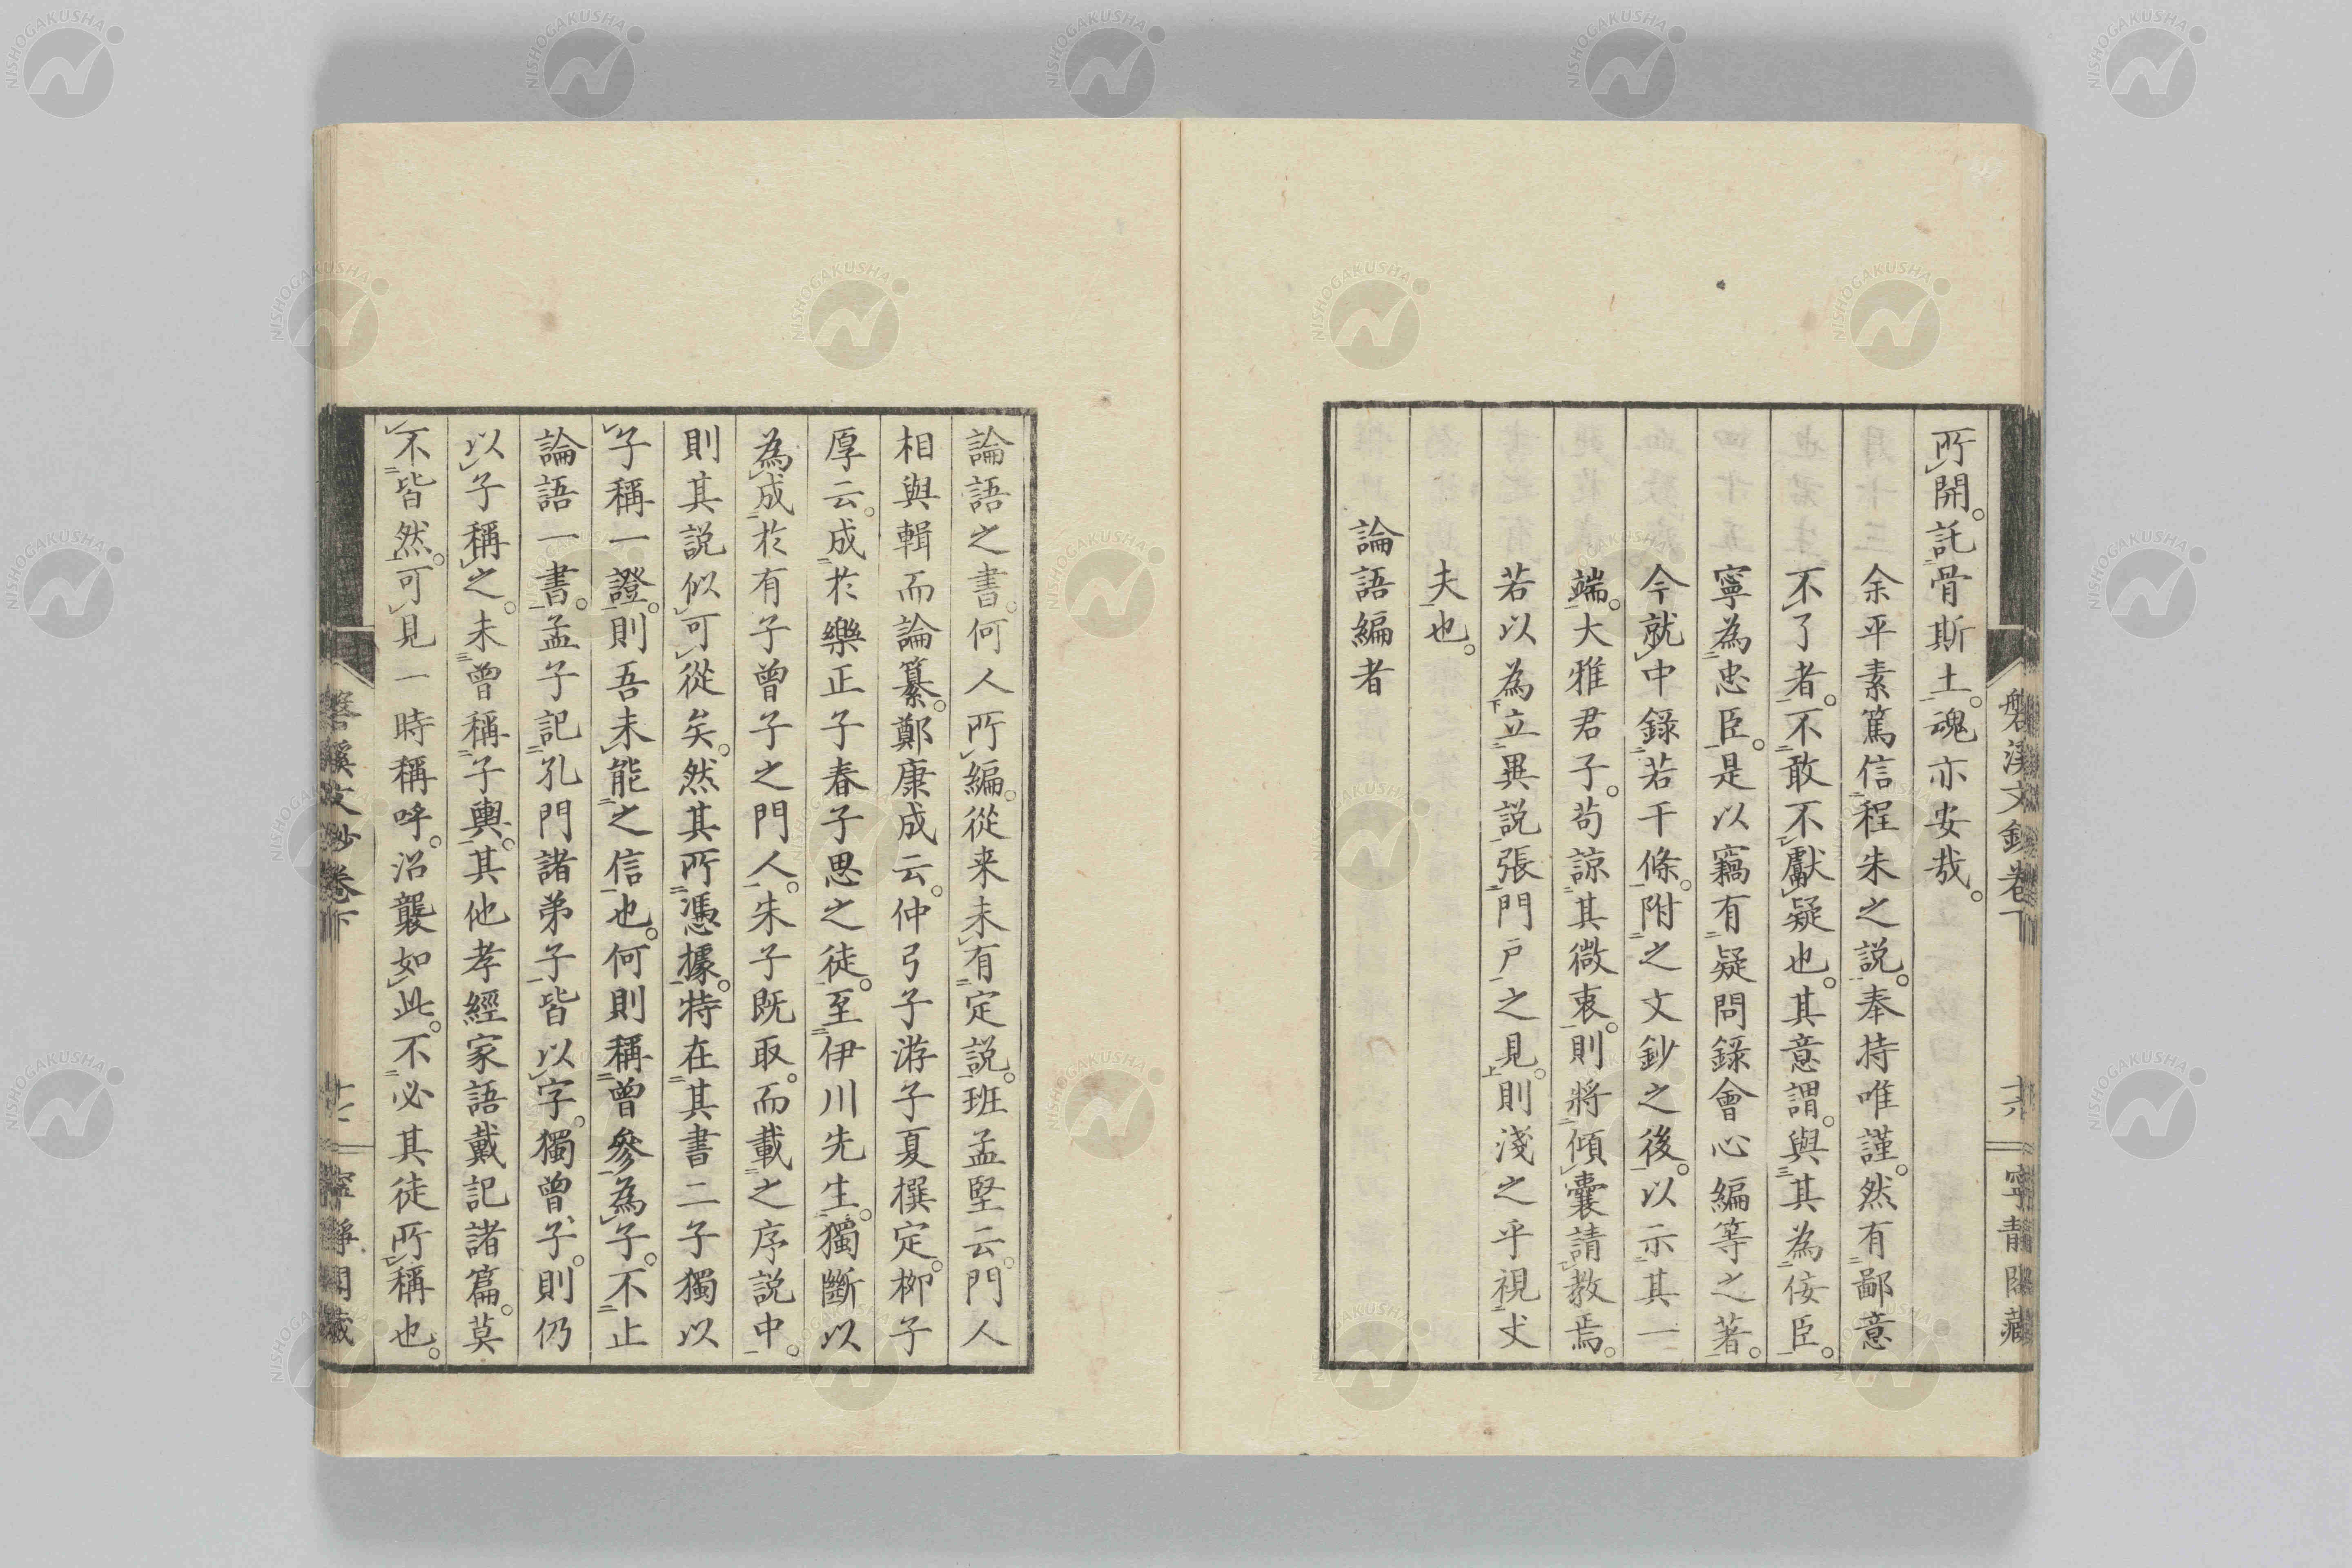 所開。託骨斯土。魂亦安哉。
余平素篤信程朱之説。奉持唯謹。然有鄙意
不了者。不敢不獻疑也。其意謂。與其為佞臣。
寧為忠臣。是以竊有疑問錄會心編等之著。
今就中錄若干條。附之文鈔之後。以示其一
端。大雅君子。苟諒其微衷。則將傾囊請教焉。
若以為立異説張門戸之見。則淺之乎視丈
夫也。
論語編者
磐溪文鈔卷下
寧靜閣藏
論語之書。何人所編。從来未有定説。班孟堅云。門人
相與輯而論纂。鄭康成云。仲弓子游子夏撰定。柳子
厚云。成於樂正子春子思之徒。至伊川先生。獨斷以
為成於有子曾子之門人。朱子既取。而載之序説中。
則其説似可從矣。然其所憑據。特在其書二子獨以
子稱一證。則吾未能之信也。何則稱曾參為子。不止
論語一書。孟子記孔門諸弟子。皆以字。獨曾子。則仍
以子稱之。未曾稱子輿。其他孝經家語戴記諸篇。莫
不皆然。可見一時稱呼。沿襲如此。不必其徒所稱也。
磐溪文鈔卷下
寧靜閣藏
NISHOGAKUSHA